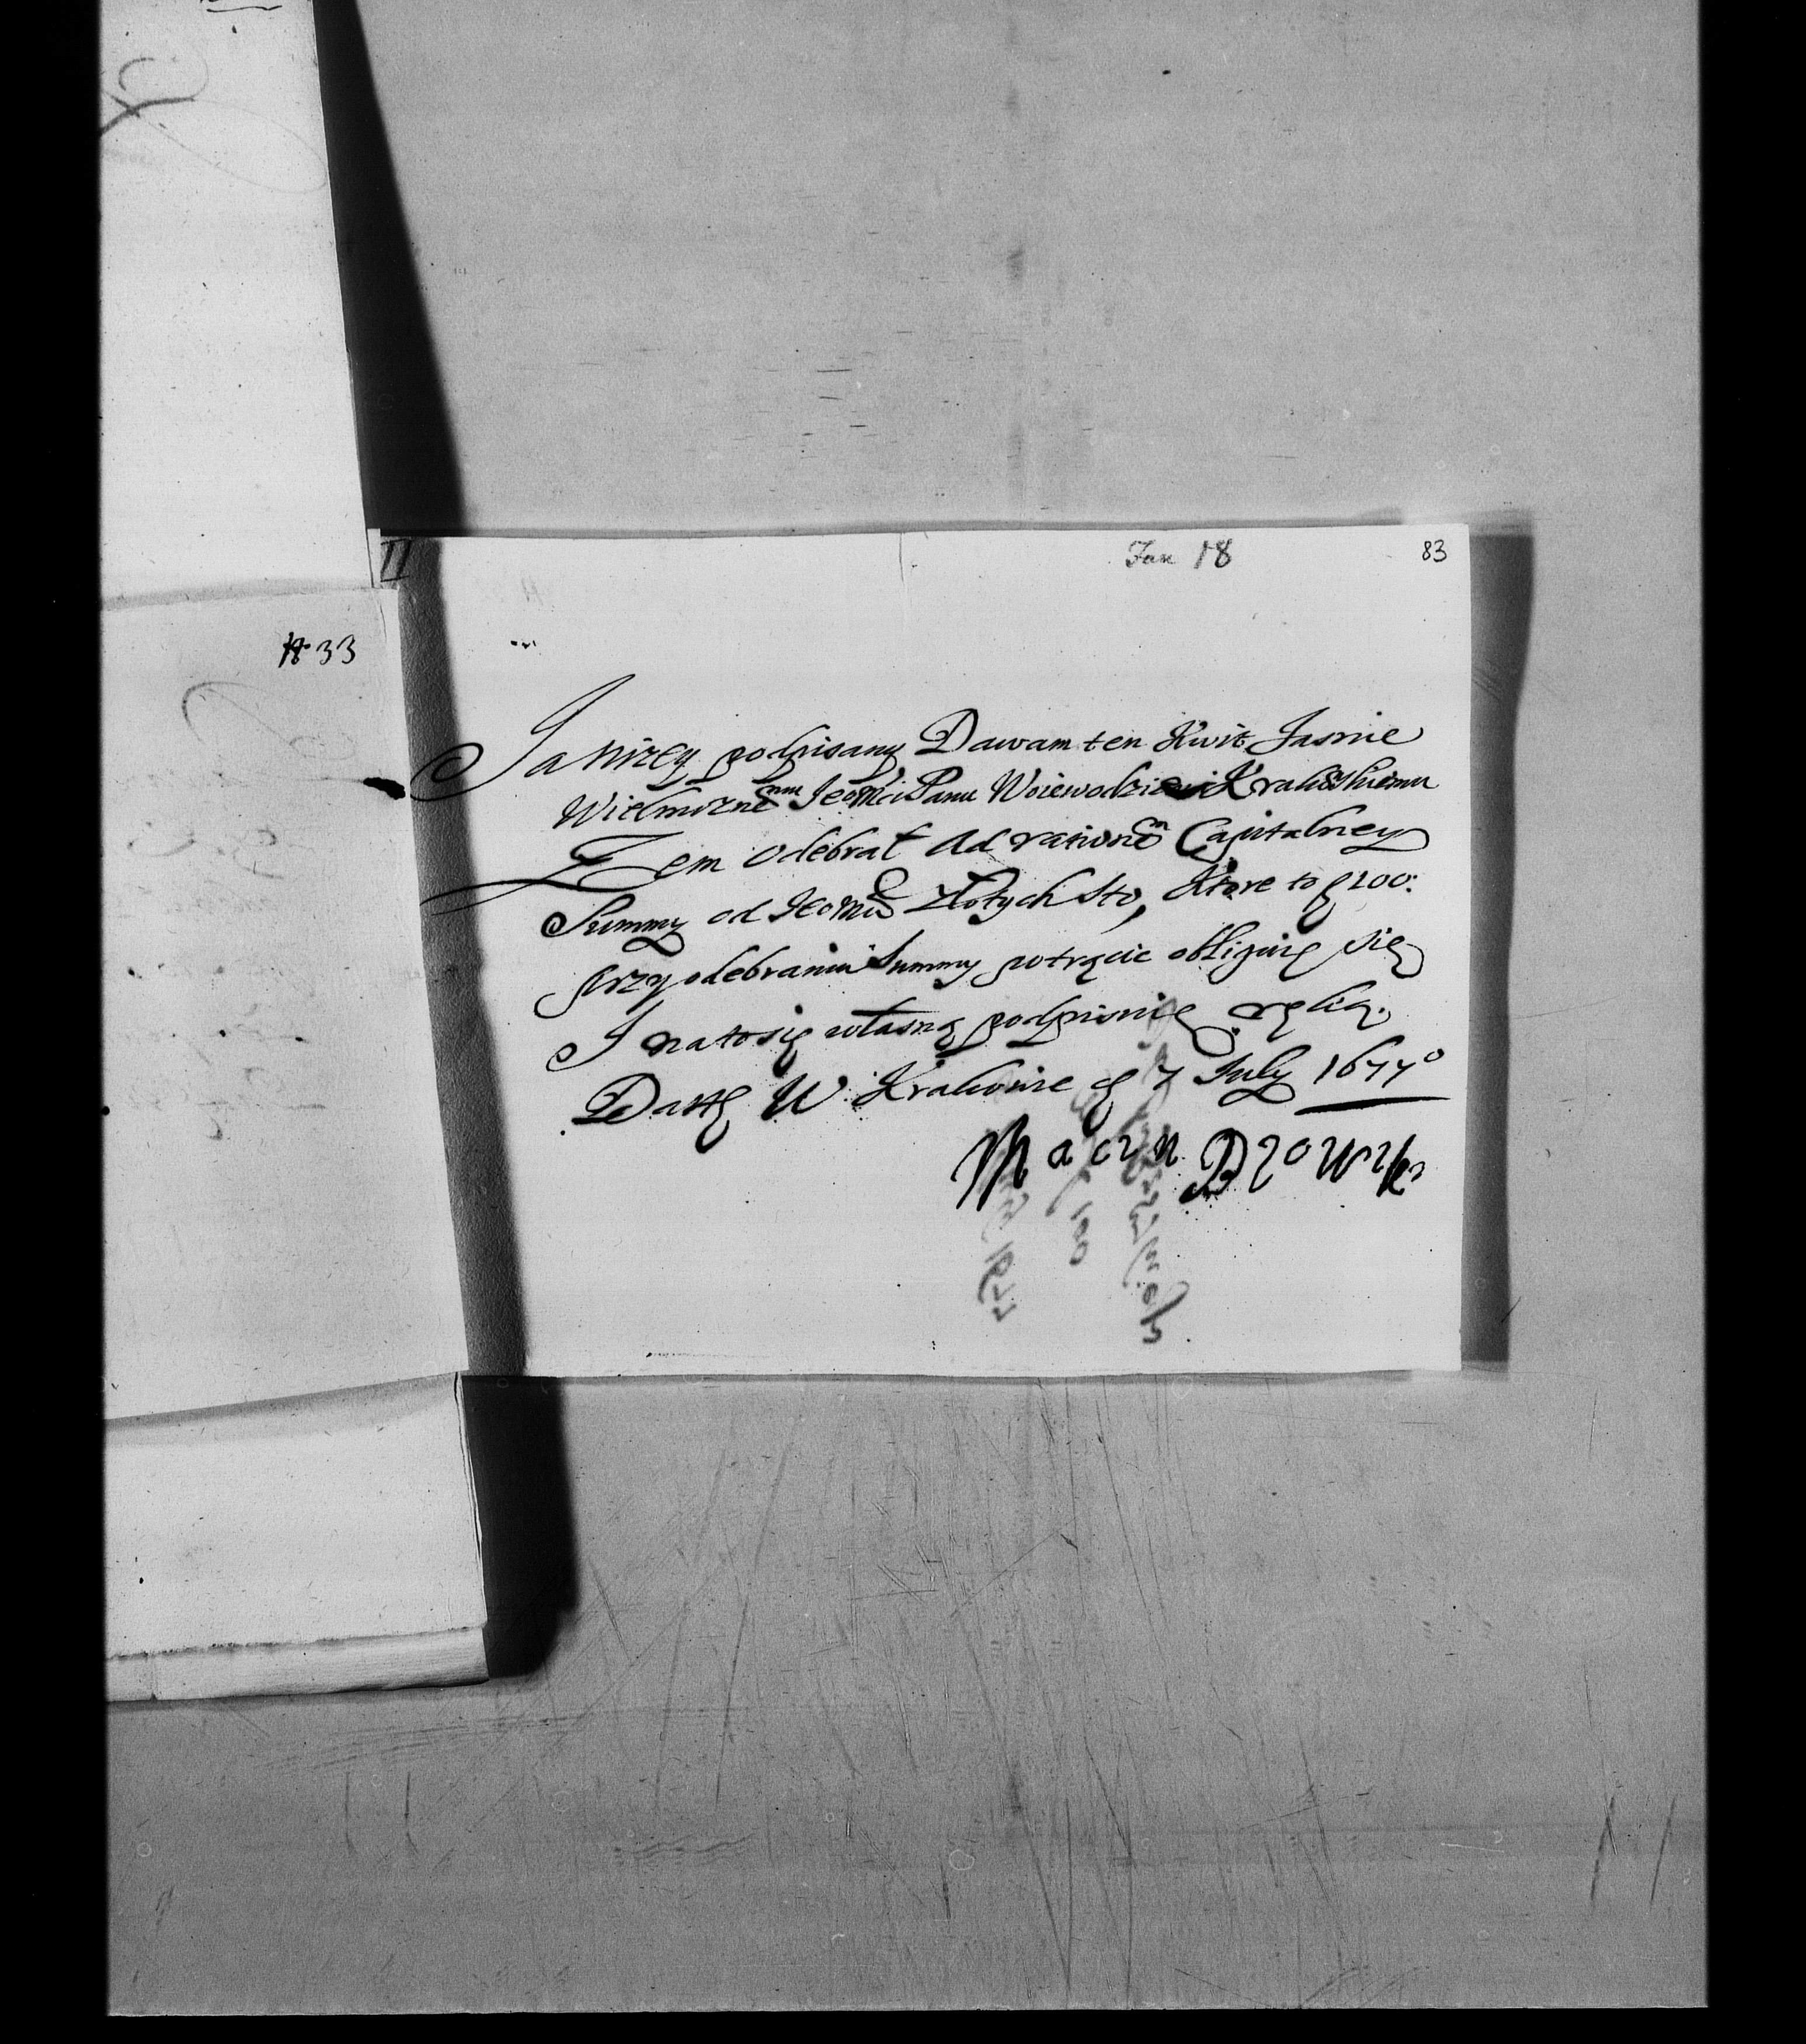 II
Fasc 18
83
№ 33
Ja nizey podpisany Dawam ten Kwit Jasnie
Wielmoznemu Jeomci Panu Woiewodzie Krakowskiemu
Zem odebrał Ad rationem Capitalney
Summy od Jeomci złotych sto, Ktore to f 100:
przy odebraniu Summy potrącic obliguię się
I na to się własną podpisuię ręką.
Datt W Krakowie d 7 July 1677°